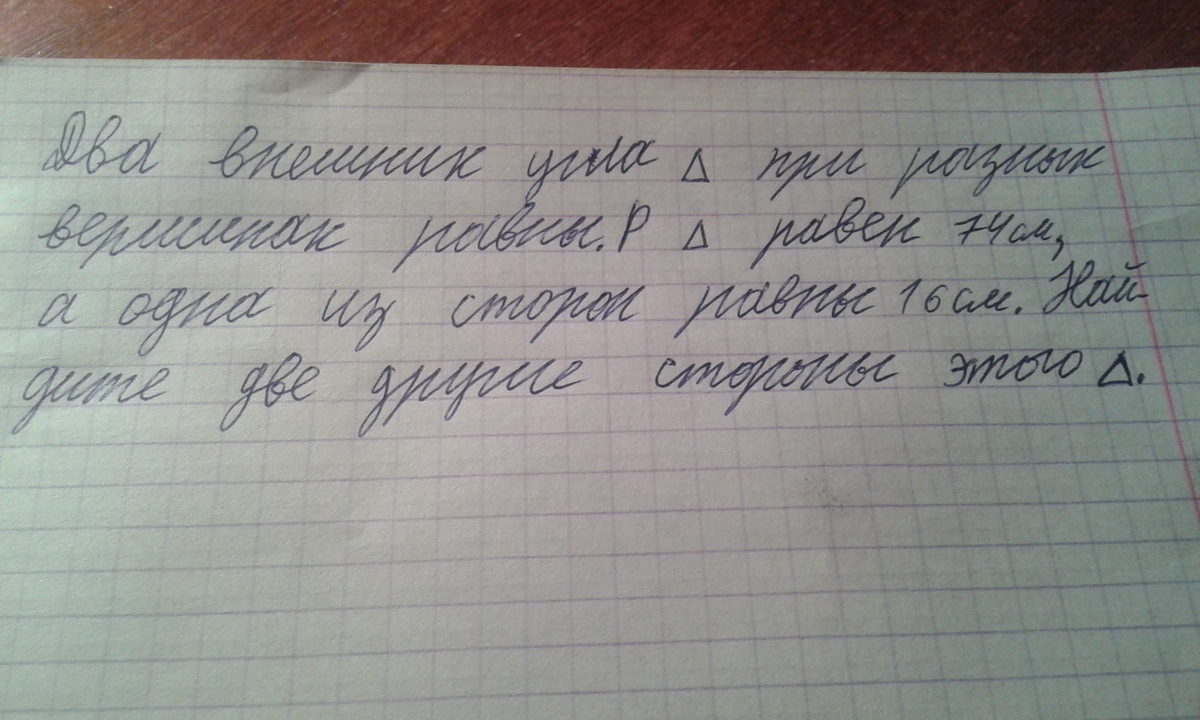 Два внешних угла △ при разных
вершинах равны. P △ равен 74 см,
а одна из сторон равны 16 см. Най-
дите две другие стороны этого △.